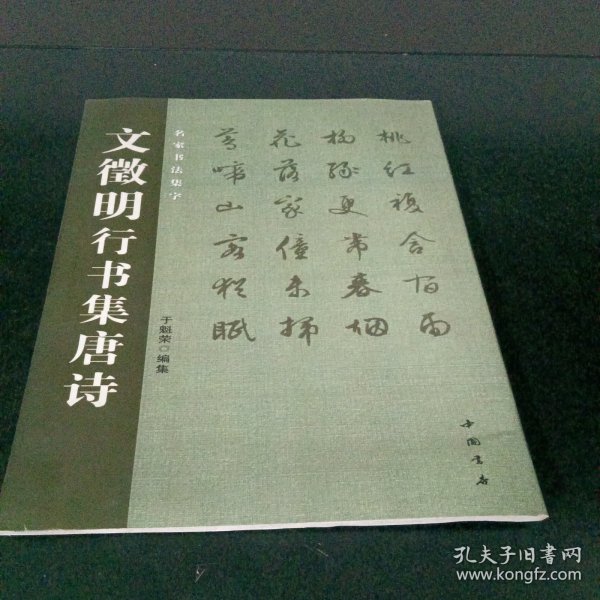 文徵明行书集唐诗
名家书法集字
于魁荣◎编集
桃红復含宿雨
柳绿更带春烟
花落家僮未掃
莺啼山客犹眠
中国书店
孔夫子旧书网
www.kongfz.com